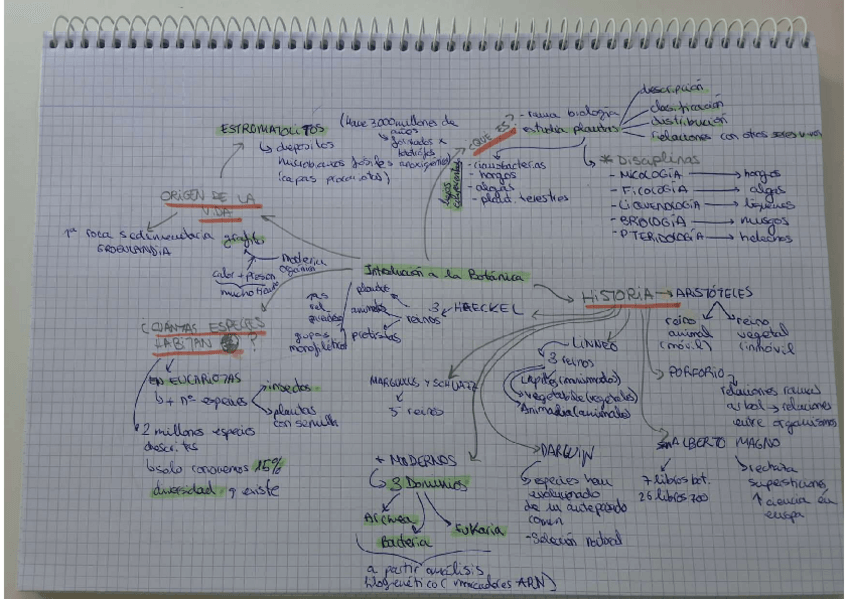 Introducción a la Botánica
¿QUE ES?
- rama biología
estudia plantas
descripción
clasificación
distribución
relaciones con otros seres vivos
- cianobacterias
- hongos
- algas
- plant. terestres
* Disciplinas
- MICOLOGÍA → hongos
- FICOLOGÍA → algas
- LIQUENOLOGÍA → líquenes
- BRIOLOGÍA → musgos
- PTERIDOLOGÍA → helechos
ORIGEN DE LA
VIDA
ESTROMATOLITOS
(Hace 3000 millones de
años
↳ depósitos
microbianos fósiles
(capas procariotas)
1ª roca sedimentaria grafito
GROELANDIA
materia
orgánica
calor + presión
mucho tiempo
¿CUANTAS ESPECIES
HABITAN ?
EN EUCARIOTAS
↳ + nº especies
insectos
plantas
con semilla
2 millones especies
descritas
↳ solo conocemos 15%
diversidad q existe
HISTORIA → ARISTÓTELES
reino
animal
(móvil)
reino
vegetal
(inmóvil)
PORFORIO
árbol → relaciones
entre organismos
SAN ALBERTO MAGNO
7 libros bot.
26 libros zoo
rechaza
supersticiones
↑ ciencia en
europa
LINNEO
3 reinos
Lapides (minerales)
Vegetabilia (vegetales)
Animalia (animales)
DARGUIN
↳ especies han
evolucionado
de un antepasado
común
- Selección natural
HAECKEL
3
reinos
plantas
animales
protistas
grupos
monofiléticos
MARGULIS Y SCHUARTZ
5 reinos
* MODERNOS
↳ 3 Dominios
Archea
Bacteria
Eukaria
a partir análisis
filogenético (marcadores ARN)